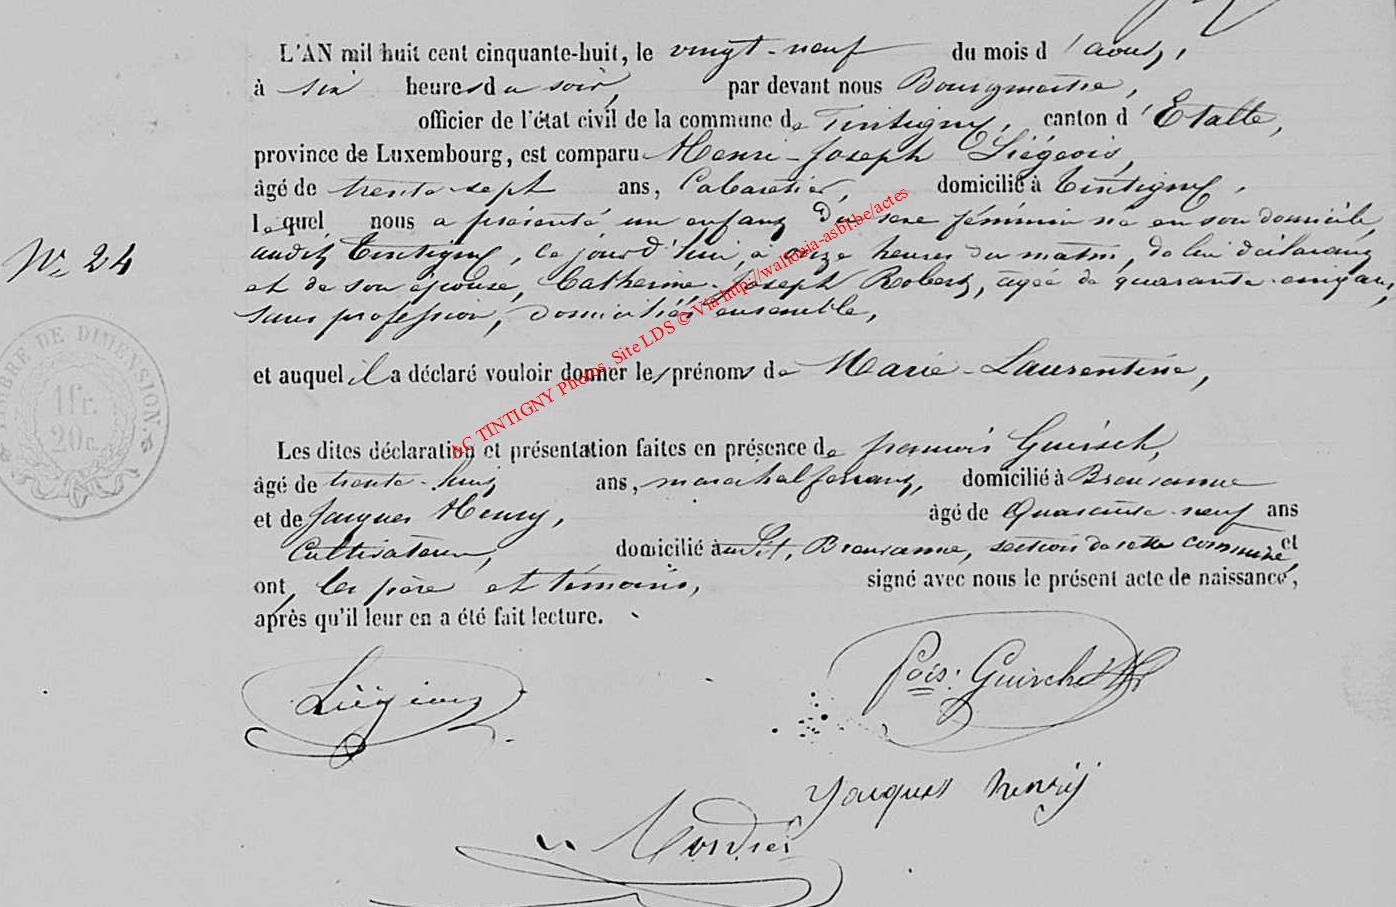 L'AN mil huit cent cinquante-huit, le vingt-neuf du mois d'août,
à six heures du soir, par devant nous Bourgmestre,
officier de l'état civil de la commune de Tintigny, canton d'Etalle,
province de Luxembourg, est comparu Henri-Joseph Liégeois,
âgé de trente-sept ans, Cabaretier, domicilié à Tintigny,
lequel nous a présenté un enfant du sexe féminin né en son domicile,
audit Tintigny, ce jourd'hui, à onze heures du matin, de lui déclarant
et de son épouse, Catherine-Joseph Robert, agée de quarante-cinq ans,
sans profession, domiciliés ensemble,
N° 24
TIMBRE DE DIMENSION.
1 fr.
20 c.
et auquel il a déclaré vouloir donner les prénoms de Marie-Laurentine,
Les dites déclaration et présentation faites en présence de françois Guirsch,
âgé de trente-huit ans, maréchal ferrant, domicilié à Breuvanne
et de Jacques Henry, âgé de Quarante-neuf ans
Cultivateur, domicilié audit Breuvanne, section de cette commune, et
ont, les père et témoins, signé avec nous le présent acte de naissance,
après qu'il leur en a été fait lecture.
Liégeois
fois. Guirch
Jacques henry
AC TINTIGNY Photos. Site LDS © Via http://wallonia-asbl.be/actes